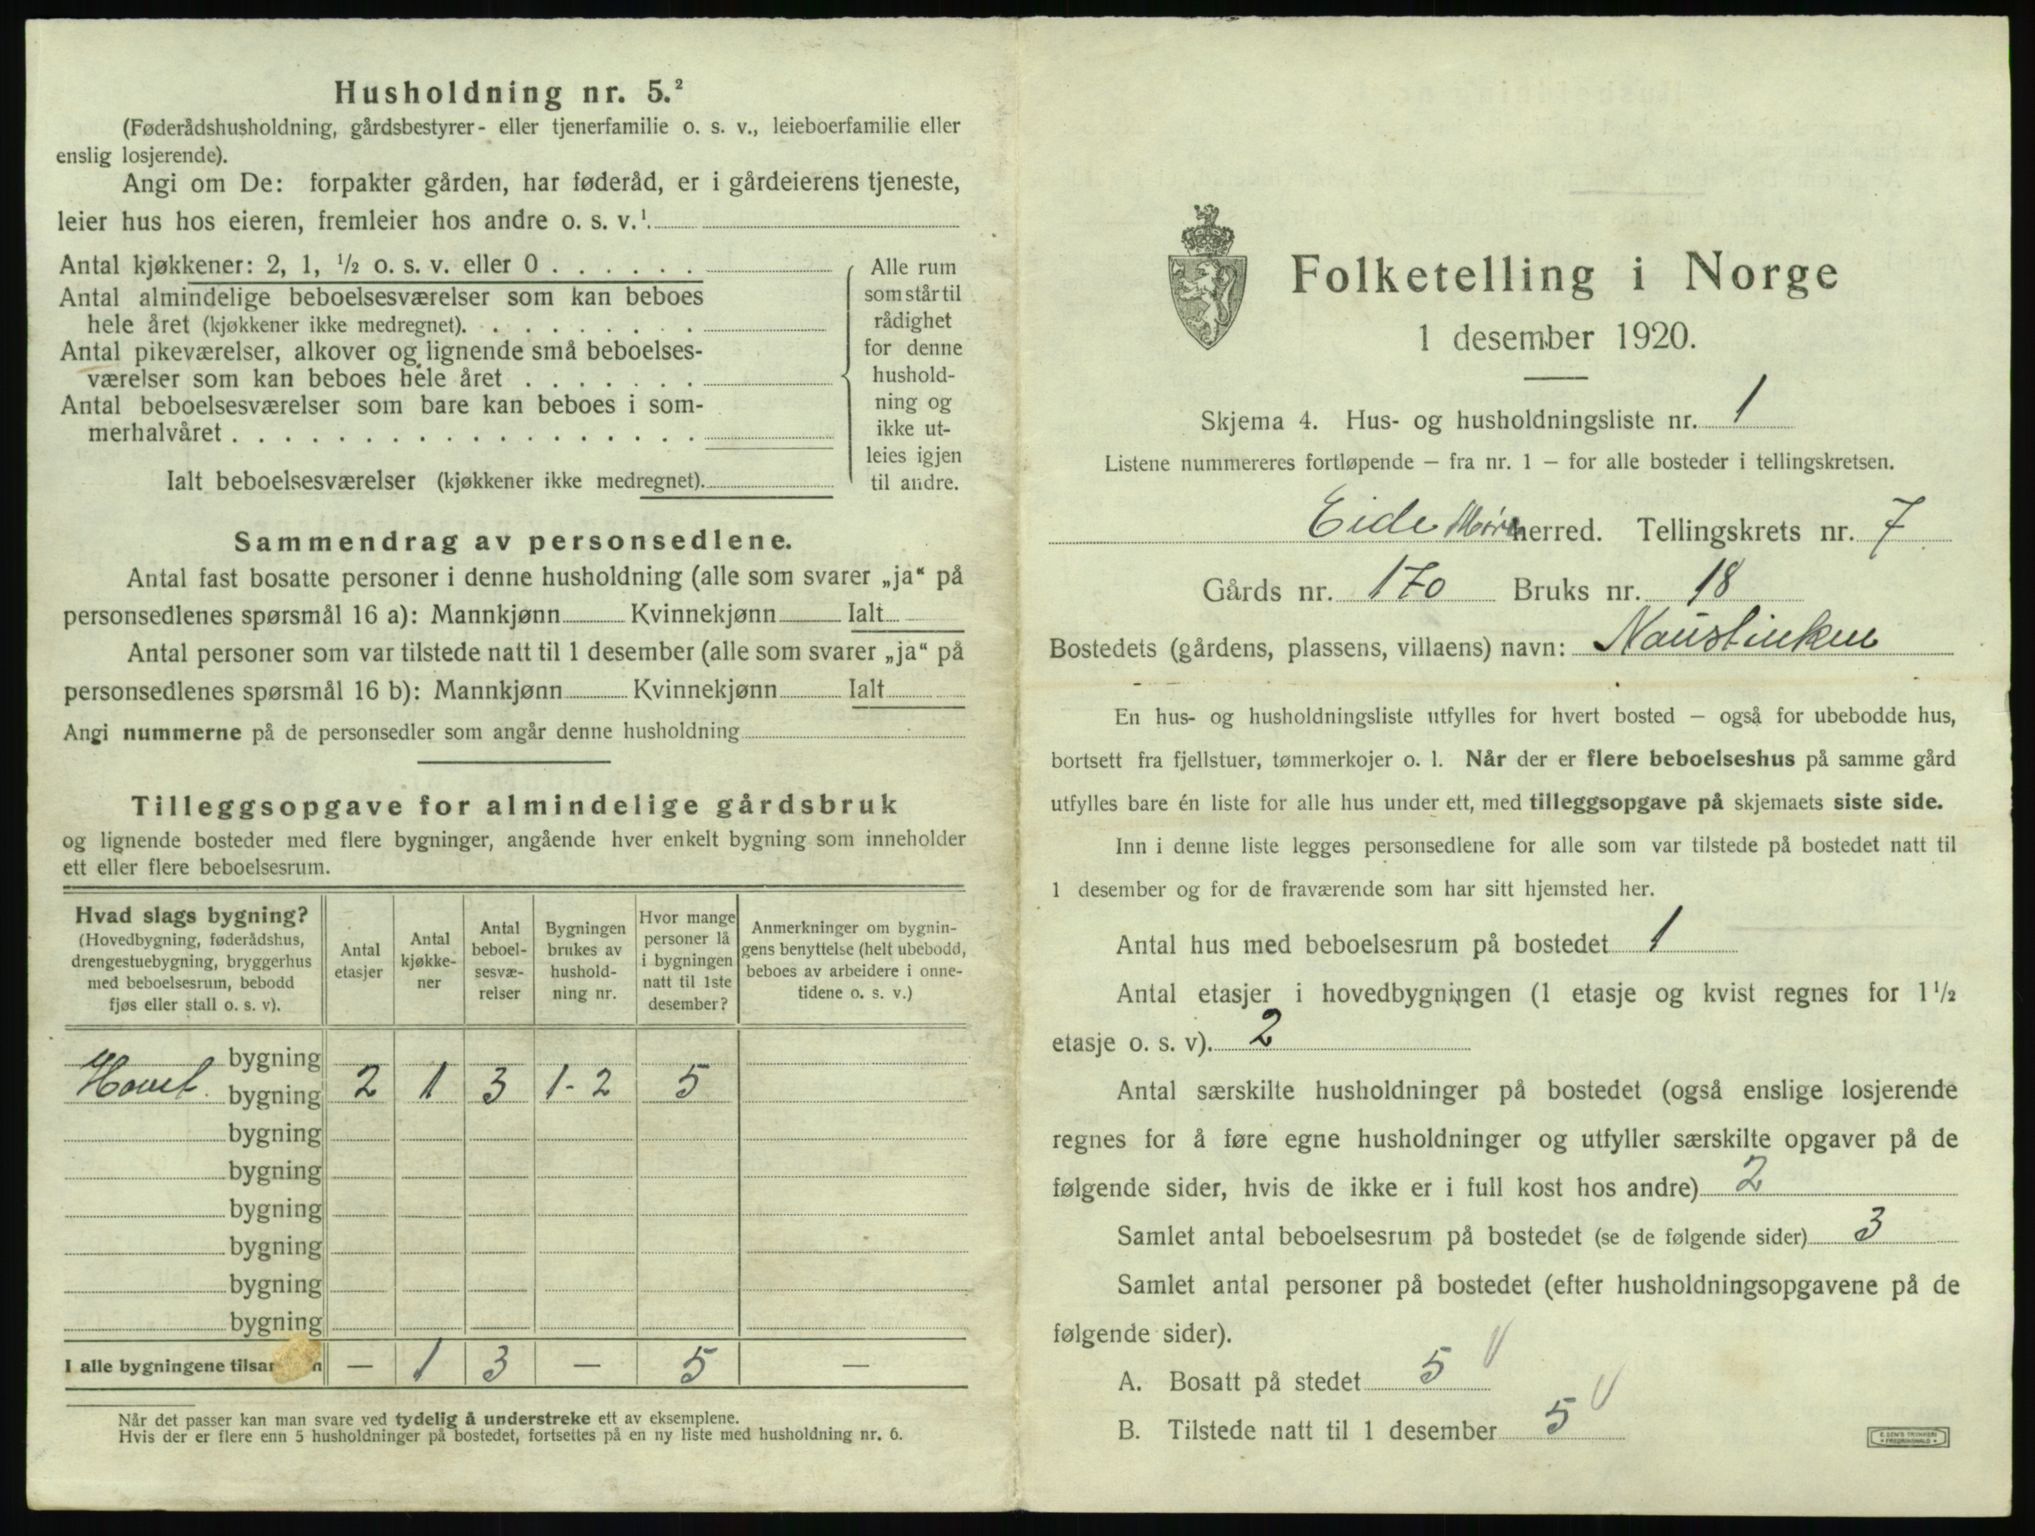 Husholdning nr. 5.²
(Føderådshusholdning, gårdsbestyrer- eller tjenerfamilie o. s. v., leieboerfamilie eller
enslig losjerende).
Angi om De: forpakter gården, har føderåd, er i gårdeierens tjeneste,
leier hus hos eieren, fremleier hos andre o. s. v.¹
Antal kjøkkener: 2, 1, ½ o. s. v. eller 0 . . . . . .
Antal almindelige beboelsesværelser som kan beboes
hele året (kjøkkener ikke medregnet). . . . . . . . .
Antal pikeværelser, alkover og lignende små beboelses-
værelser som kan beboes hele året . . . . . . .
Antal beboelsesværelser som bare kan beboes i som-
merhalvåret . . . . . . . . . . . . . . . . . .
Ialt beboelsesværelser (kjøkkener ikke medregnet).
Alle rum
som står til
rådighet
for denne
hushold-
ning og
ikke ut-
leies igjen
til andre.
Sammendrag av personsedlene.
Antal fast bosatte personer i denne husholdning (alle som svarer „ja“ på
personsedlenes spørsmål 16 a): Mannkjønn Kvinnekjønn Ialt
Antal personer som var tilstede natt til 1 desember (alle som svarer „ja“ på
personsedlenes spørsmål 16 b): Mannkjønn Kvinnekjønn Ialt
Angi nummerne på de personsedler som angår denne husholdning
Tilleggsopgave for almindelige gårdsbruk
og lignende bosteder med flere bygninger, angående hver enkelt bygning som inneholder
ett eller flere beboelsesrum.
Hvad slags bygning?
(Hovedbygning, føderådshus,
drengestuebygning, bryggerhus
med beboelsesrum, bebodd
fjøs eller stall o. s. v).
Antal
etasjer
Antal
kjøkke-
ner
Antal
beboel-
sesvæ-
relser
Bygningen
brukes av
hushold-
ning nr.
Hvor mange
personer lå
i bygningen
natt til 1ste
desember?
Anmerkninger om bygnin-
gens benyttelse (helt ubebodd,
beboes av arbeidere i onne-
tidene o. s. v.)
bygning
Hovet bygning 2 1 3 1-2 5
bygning
bygning
bygning
bygning
bygning
bygning
I alle bygningene tilsammen — 1 3 — 5 —
Når det passer kan man svare ved tydelig å understreke ett av eksemplene.
Hvis der er flere enn 5 husholdninger på bostedet, fortsettes på en ny liste med husholdning nr. 6.
Folketelling i Norge
1 desember 1920.
Skjema 4. Hus- og husholdningsliste nr. 1
Listene nummereres fortløpende — fra nr. 1 — for alle bosteder i tellingskretsen.
Eide Møre herred. Tellingskrets nr. 7
Gårds nr. 170 Bruks nr. 18
Bostedets (gårdens, plassens, villaens) navn:
En hus- og husholdningsliste utfylles for hvert bosted — også for ubebodde hus,
bortsett fra fjellstuer, tømmerkojer o. l. Når der er flere beboelseshus på samme gård
utfylles bare én liste for alle hus under ett, med tilleggsopgave på skjemaets siste side.
Inn i denne liste legges personsedlene for alle som var tilstede på bostedet natt til
1 desember og for de fraværende som har sitt hjemsted her.
Antal hus med beboelsesrum på bostedet 1
Antal etasjer i hovedbygningen (1 etasje og kvist regnes for 1½
etasje o. s. v). 2
Antal særskilte husholdninger på bostedet (også enslige losjerende
regnes for å føre egne husholdninger og utfyller særskilte opgaver på de
følgende sider, hvis de ikke er i full kost hos andre) 2
Samlet antal beboelsesrum på bostedet (se de følgende sider) 3
Samlet antal personer på bostedet (efter husholdningsopgavene på de
følgende sider).
A. Bosatt på stedet 5
B. Tilstede natt til 1 desember 5